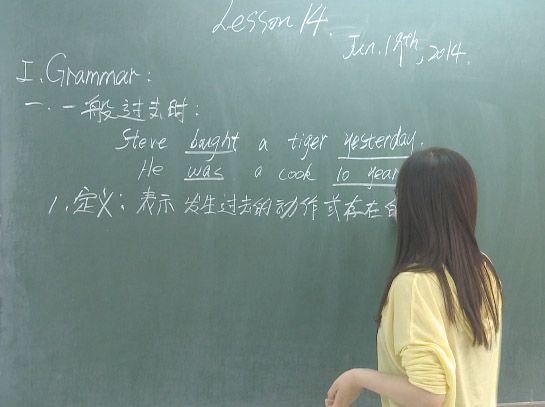 Lesson 14.
Jun. 19th, 2014.
I. Grammar:
一. 一般过去时:
Steve bought a tiger yesterday.
He was a cook 10 year
1. 定义: 表示发生过去的动作或存在